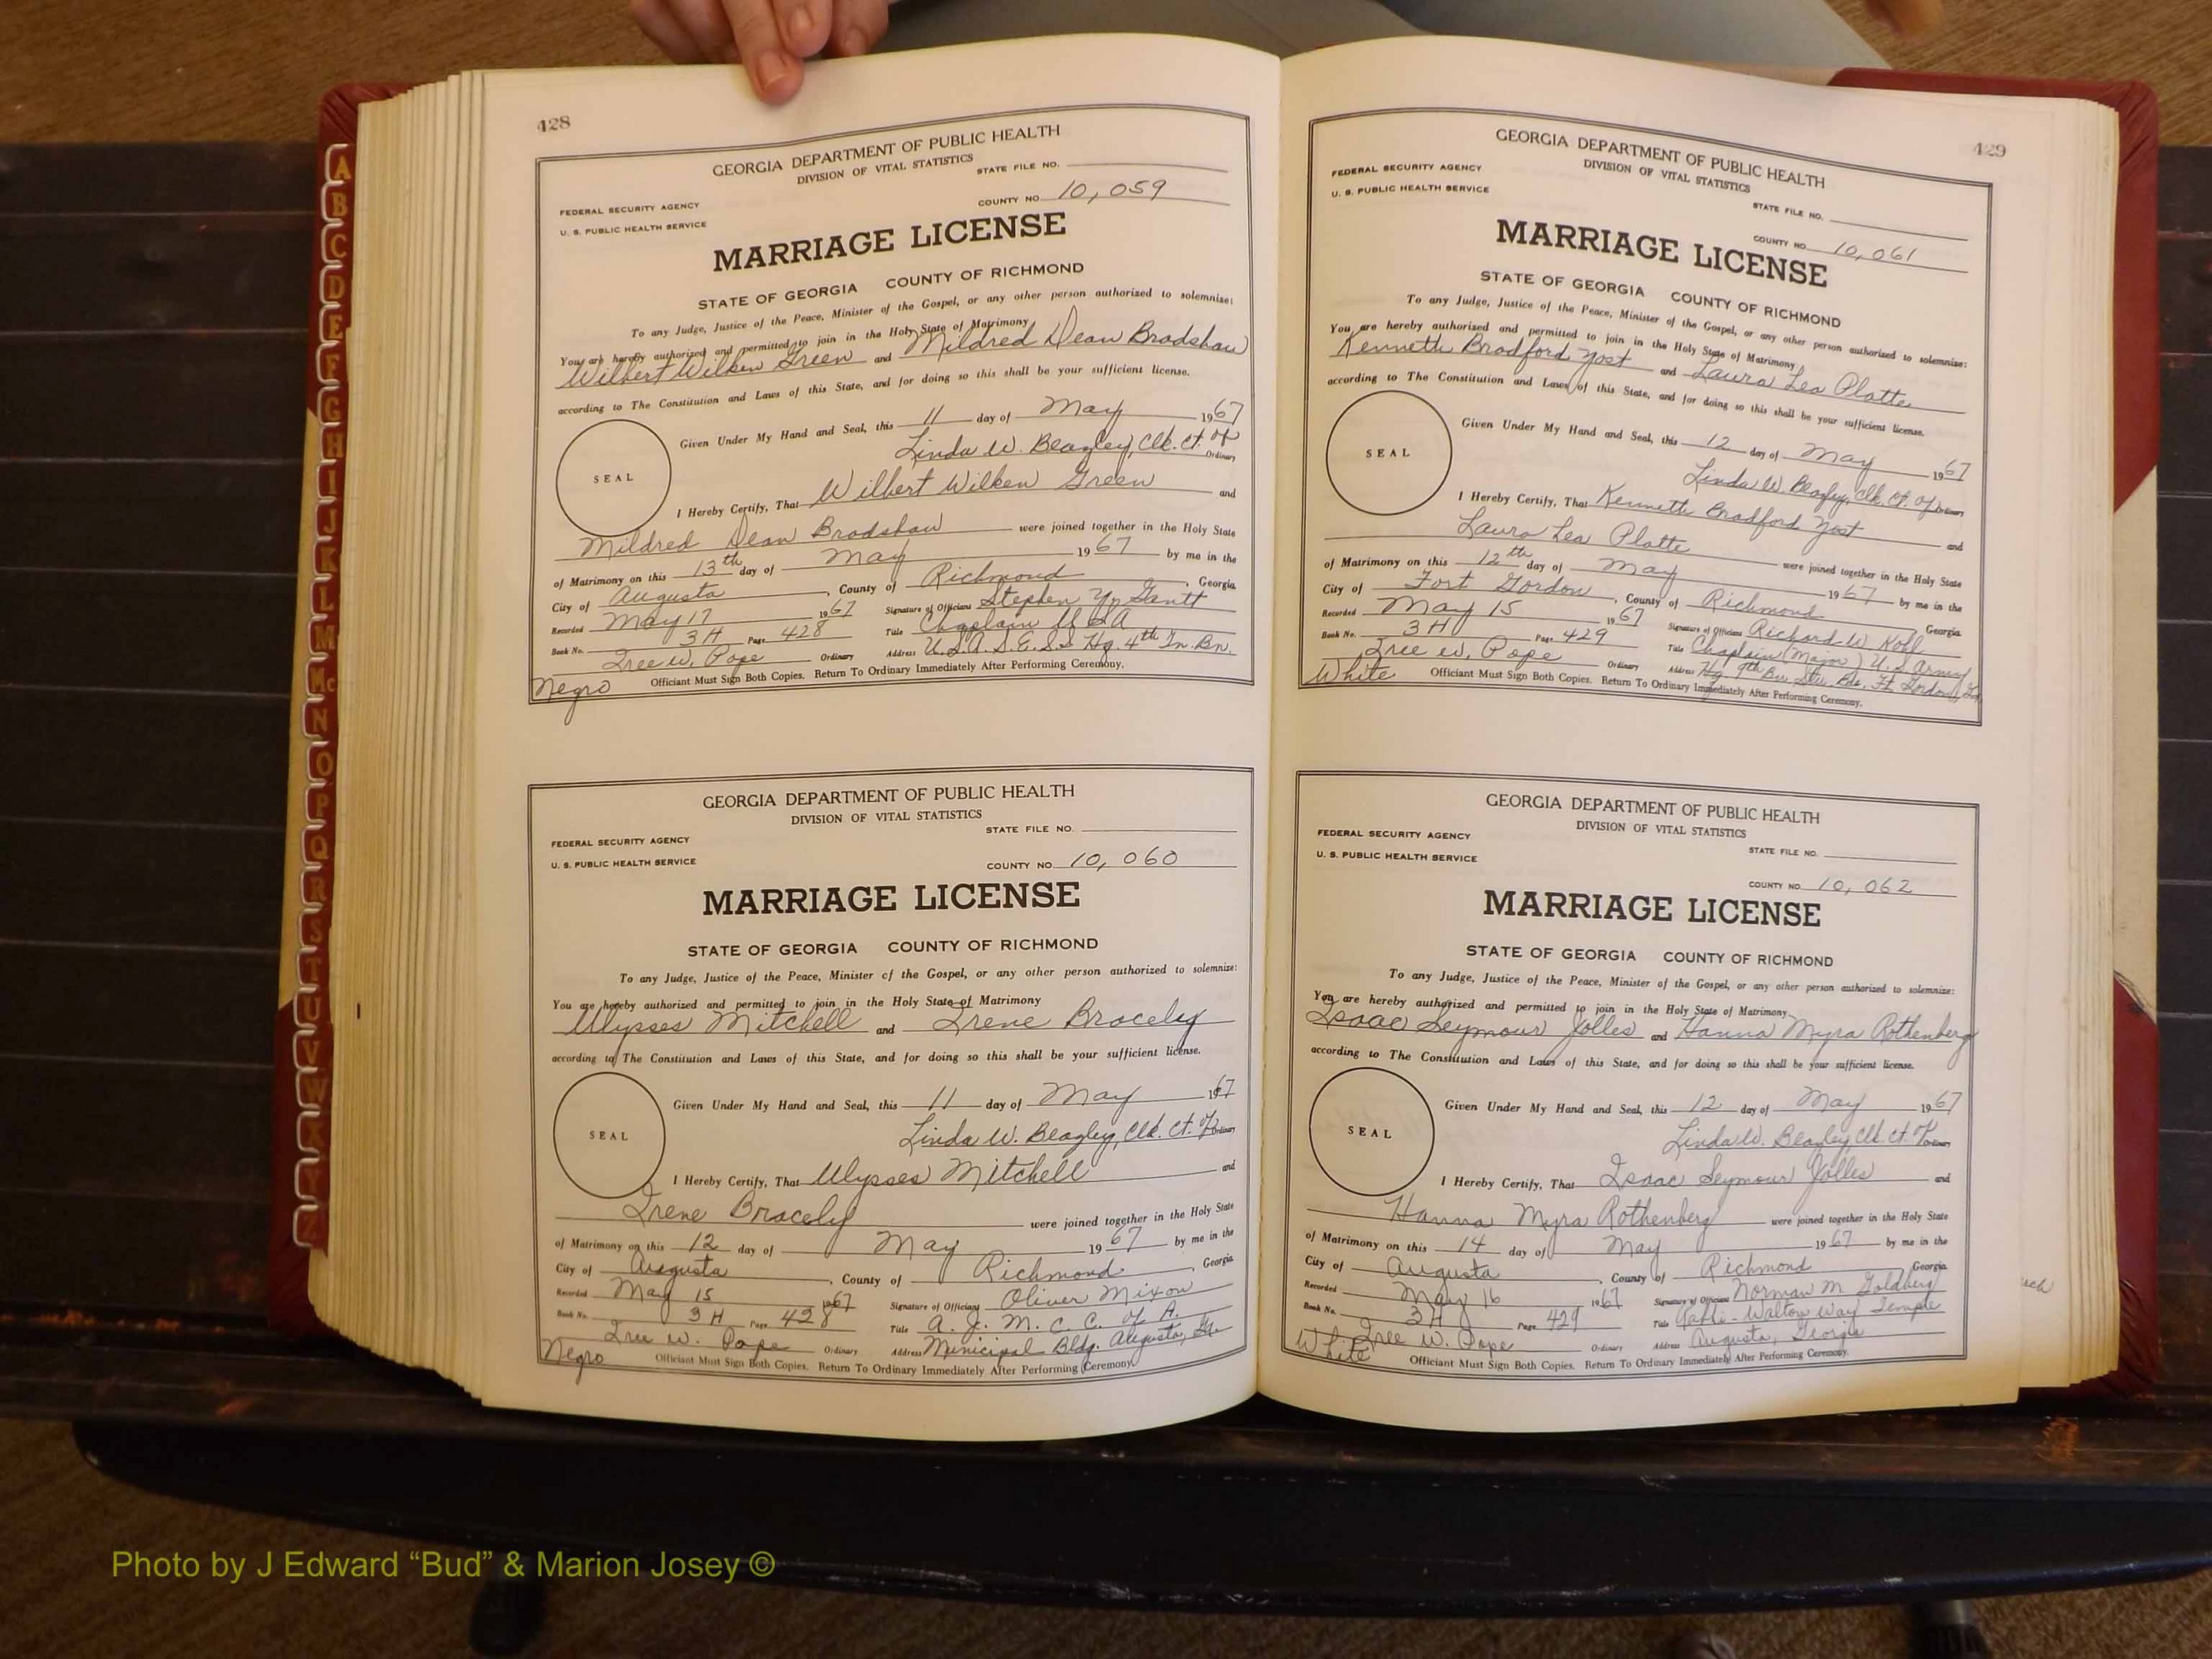 428
GEORGIA DEPARTMENT OF PUBLIC HEALTH
DIVISION OF VITAL STATISTICS
STATE FILE NO.
FEDERAL SECURITY AGENCY
COUNTY NO. 10,059
U. S. PUBLIC HEALTH SERVICE
MARRIAGE LICENSE
STATE OF GEORGIA COUNTY OF RICHMOND
To any Judge, Justice of the Peace, Minister of the Gospel, or any other person authorized to solemnize:
You are hereby authorized and permitted to join in the Holy State of Matrimony
Wilbert Wilken Green and Mildred Dean Bradshaw
according to The Constitution and Laws of this State, and for doing so this shall be your sufficient license.
Given Under My Hand and Seal, this 11 day of May 1967
SEAL
Linda W. Beazley, Clk. Ct. of Ordinary
I Hereby Certify, That Wilbert Wilken Green and
Mildred Dean Bradshaw were joined together in the Holy State
of Matrimony on this 13th day of May 1967 by me in the
City of Augusta, County of Richmond, Georgia
Recorded May 17 1967 Signature of Officiant Stephen Y. Gantt
Book No. 3H Page 428 Title Chaplain USA
Iree W. Pope Ordinary Address U.S.A.S.E.S.S Hq. 4th Tn. Bn.
Negro Officiant Must Sign Both Copies. Return To Ordinary Immediately After Performing Ceremony.
GEORGIA DEPARTMENT OF PUBLIC HEALTH
DIVISION OF VITAL STATISTICS
STATE FILE NO.
FEDERAL SECURITY AGENCY
COUNTY NO. 10,060
U. S. PUBLIC HEALTH SERVICE
MARRIAGE LICENSE
STATE OF GEORGIA COUNTY OF RICHMOND
To any Judge, Justice of the Peace, Minister of the Gospel, or any other person authorized to solemnize:
You are hereby authorized and permitted to join in the Holy State of Matrimony
Ulysses Mitchell and Irene Bracely
according to The Constitution and Laws of this State, and for doing so this shall be your sufficient license.
Given Under My Hand and Seal, this 11 day of May 1967
SEAL
Linda W. Beazley, Clk. Ct. of Ordinary
I Hereby Certify, That Ulysses Mitchell and
Irene Bracely were joined together in the Holy State
of Matrimony on this 12 day of May 1967 by me in the
City of Augusta, County of Richmond, Georgia
Recorded May 15 1967 Signature of Officiant Oliver Mixon
Book No. 3H Page 428 Title A. J. M. C. C. of A.
Iree W. Pope Ordinary Address Municipal Bldg. Augusta, Ga.
Negro Officiant Must Sign Both Copies. Return To Ordinary Immediately After Performing Ceremony.
429
GEORGIA DEPARTMENT OF PUBLIC HEALTH
DIVISION OF VITAL STATISTICS
FEDERAL SECURITY AGENCY
U. S. PUBLIC HEALTH SERVICE
STATE FILE NO.
COUNTY NO. 10,061
MARRIAGE LICENSE
STATE OF GEORGIA COUNTY OF RICHMOND
To any Judge, Justice of the Peace, Minister of the Gospel, or any other person authorized to solemnize:
You are hereby authorized and permitted to join in the Holy State of Matrimony
Kenneth Bradford Yost and Laura Lea Platte
according to The Constitution and Laws of this State, and for doing so this shall be your sufficient license.
Given Under My Hand and Seal, this 12 day of May 1967
SEAL
Linda W. Beazley, Clk. Ct. of Ordinary
I Hereby Certify, That Kenneth Bradford Yost and
Laura Lea Platte were joined together in the Holy State
of Matrimony on this 12th day of May 1967 by me in the
City of Fort Gordon, County of Richmond Georgia
Recorded May 15 1967 Signature of Officiant Richard W. Kohl
Book No. 3H Page 429 Title Chaplain (Major) U.S. Army
Iree W. Pope Ordinary Address Hq. 9th Bn. Bde, Ft. Gordon, Ga.
White Officiant Must Sign Both Copies. Return To Ordinary Immediately After Performing Ceremony.
GEORGIA DEPARTMENT OF PUBLIC HEALTH
DIVISION OF VITAL STATISTICS
FEDERAL SECURITY AGENCY
STATE FILE NO.
U. S. PUBLIC HEALTH SERVICE
COUNTY NO. 10,062
MARRIAGE LICENSE
STATE OF GEORGIA COUNTY OF RICHMOND
To any Judge, Justice of the Peace, Minister of the Gospel, or any other person authorized to solemnize:
You are hereby authorized and permitted to join in the Holy State of Matrimony
Isaac Seymour Jolles and Hanna Myra Rothenberg
according to The Constitution and Laws of this State, and for doing so this shall be your sufficient license.
Given Under My Hand and Seal, this 12 day of May 1967
SEAL
Linda W. Beazley, Clk. Ct. of Ordinary
I Hereby Certify, That Isaac Seymour Jolles and
Hanna Myra Rothenberg were joined together in the Holy State
of Matrimony on this 14 day of May 1967 by me in the
City of Augusta, County of Richmond Georgia
Recorded May 16 1967 Signature of Officiant Norman M. Goldberg
Book No. 3H Page 429 Title Rabbi - Walton Way Temple
Iree W. Pope Ordinary Address Augusta, Georgia
White Officiant Must Sign Both Copies. Return To Ordinary Immediately After Performing Ceremony.
A
B
C
D
E
F
G
H
I
J
K
L
M
Mc
N
O
P
Q
R
S
T
U
V
W
X
Y
Z
Photo by J Edward “Bud” & Marion Josey ©